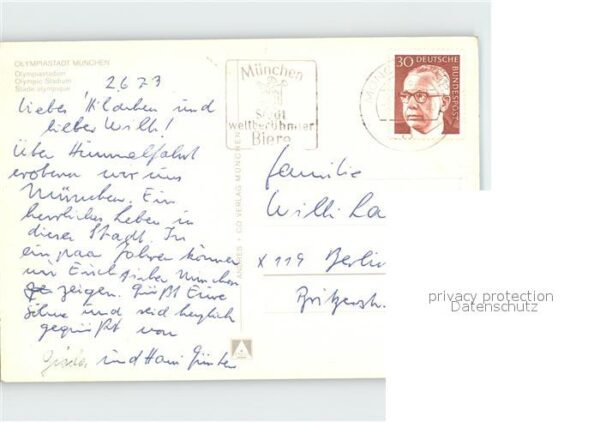 OLYMPIASTADT MÜNCHEN
Olympiastadion
Olympic Stadium
Stade olympique
2673
Lieber Hildchen und
lieber Willi!
Über Himmelfahrt
erobern wir uns
München. Ein
herrliches Leben in
dieser Stadt. In
ein paar Jahren können
wir Euch München
zeigen. Grüßt Eure
Söhne und seid herzlich
gegrüßt von
und Hans Günter
ANDRES + CO VERLAG MÜNCHEN
München
Stadt
weltberühmter
Biere
30
DEUTSCHE
BUNDESPOST
Familie
Willi La
X 119 Berlin
Britzerstr.
privacy protection
Datenschutz